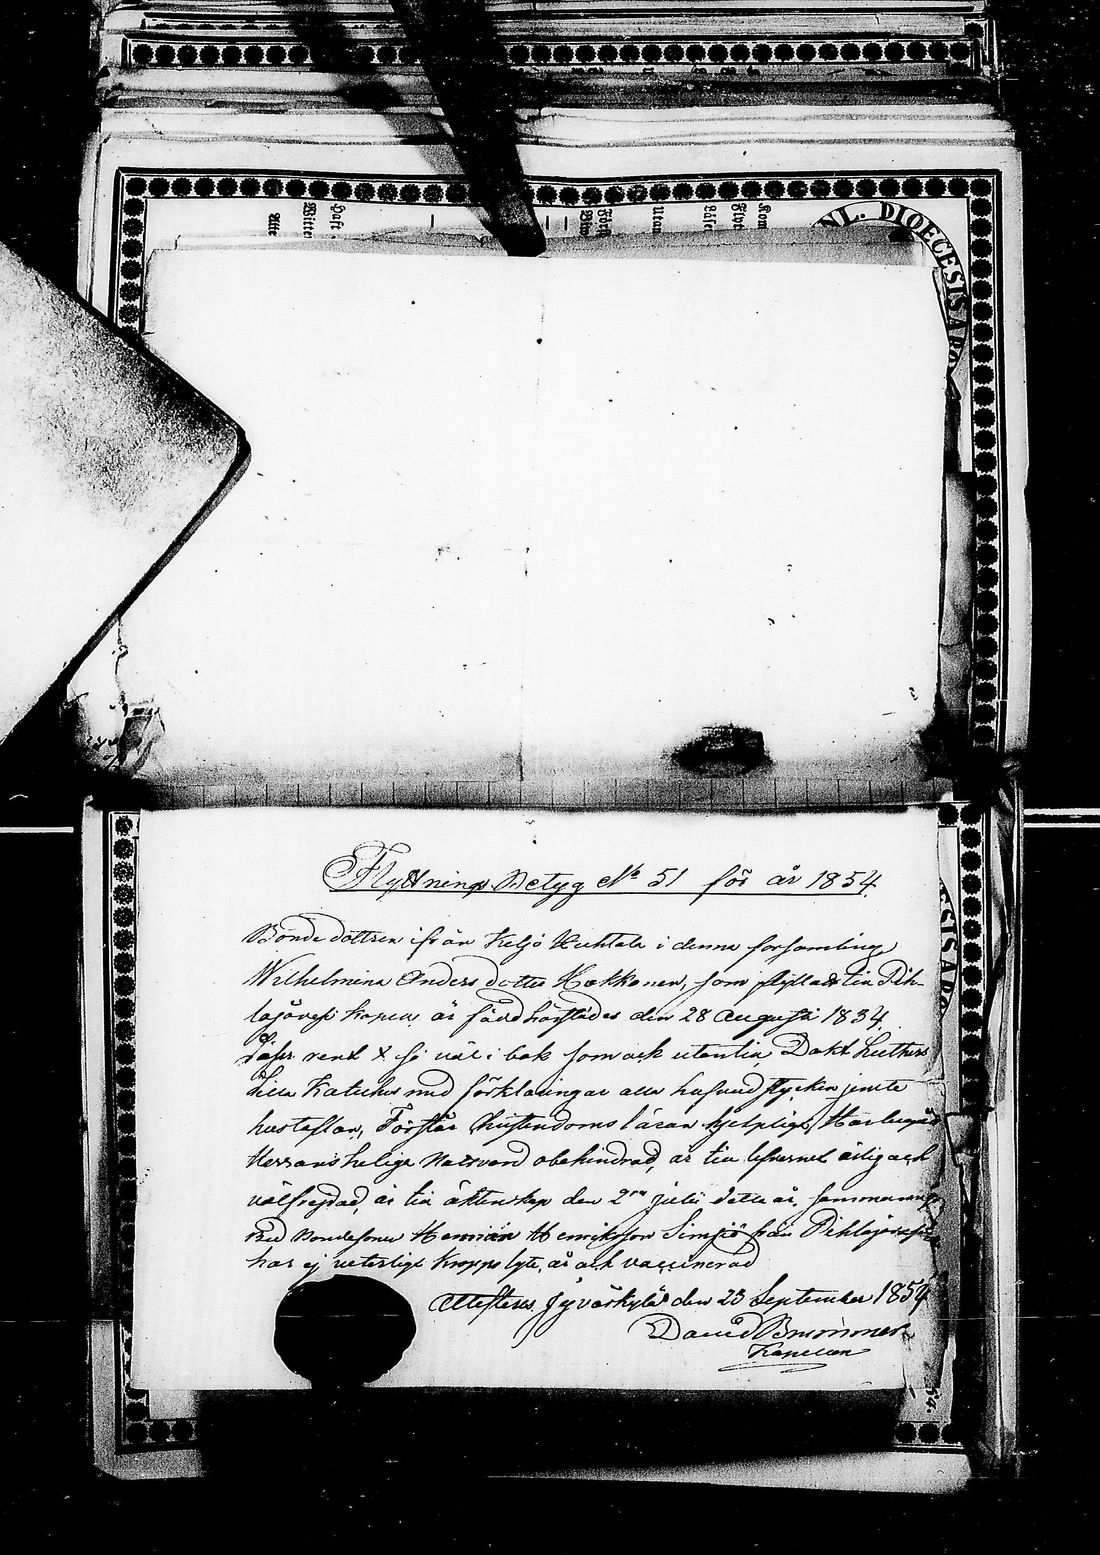 NL. DIOECESIS ABO
Flyttnings Betyg No 51 för år 1854.
Bonde dottren ifrån Keljo Huhtala i denna församling
Wilhelmina Anders dotter Hokkonen, som flyttar till Pih-
lajavesi Kapell, är född härstädes den 28 Augusti 1834,
läser rent & så väl i bok som ock utantill Dokt Luthers
Lilla Katches med förklaringar alla hufvudstycken jemte
hustaflan, Förstår Kristendoms läran hjelpligt, Har begått
Herrans helige Nattvard obehindrad, är till lefvernet ärlig och
välfrejdad, är till äktenskap den 2ra julii detta år sammanvigd
med Bondesonen Hemián Henriksson Simsiö från Pihlajavesi
har ej veterligt kropps lyte, är ock vaccinerad
Attesteras Jyväskylä den 23 September 1854
David Brummer
Kapellan